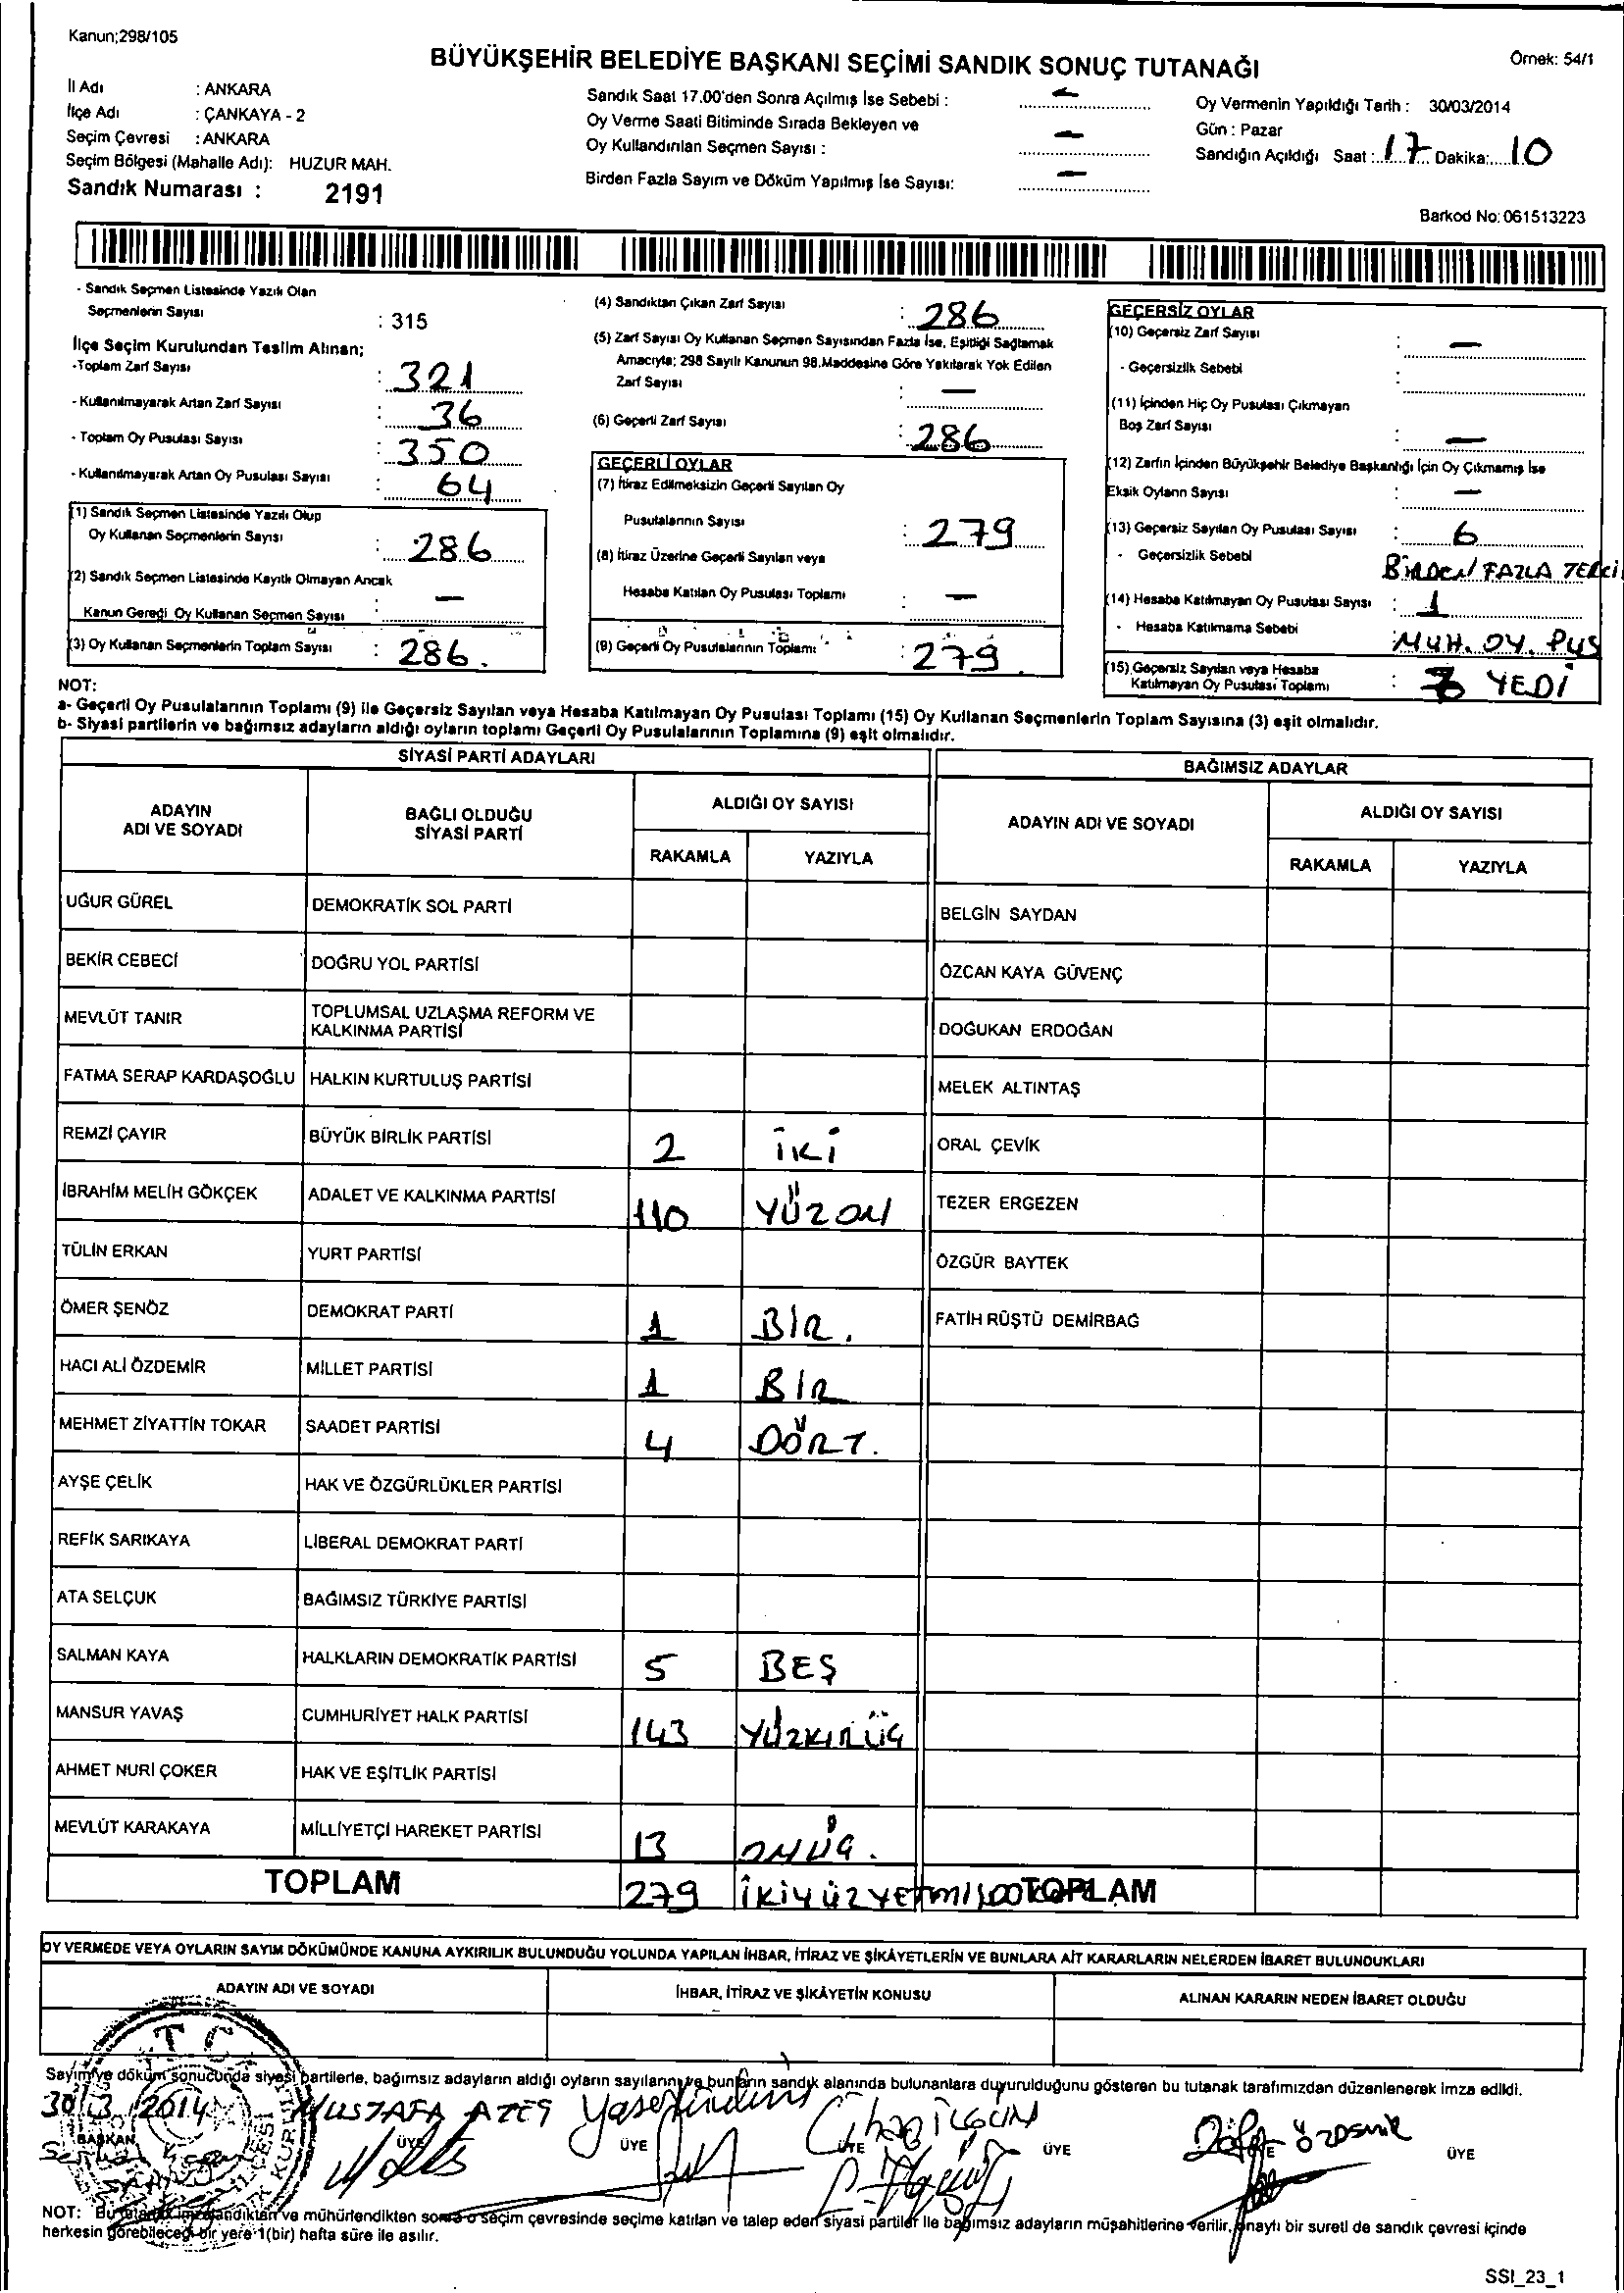 Kanun;298/105
Örnek: 54/1
BÜYÜKŞEHİR BELEDİYE BAŞKANI SEÇİMİ SANDIK SONUÇ TUTANAĞI
İl Adı : ANKARA
İlçe Adı : ÇANKAYA - 2
Seçim Çevresi : ANKARA
Seçim Bölgesi (Mahalle Adı): HUZUR MAH.
Sandık Numarası : 2191
Sandık Saat 17.00'den Sonra Açılmış İse Sebebi : —
Oy Verme Saati Bitiminde Sırada Bekleyen ve
Oy Kullandırılan Seçmen Sayısı : —
Birden Fazla Sayım ve Döküm Yapılmış İse Sayısı: —
Oy Vermenin Yapıldığı Tarih : 30/03/2014
Gün : Pazar
Sandığın Açıldığı Saat : 17 Dakika: 10
Barkod No: 061513223
- Sandık Seçmen Listesinde Yazılı Olan
Seçmenlerin Sayısı : 315
İlçe Seçim Kurulundan Teslim Alınan;
-Toplam Zarf Sayısı : 321
- Kullanılmayarak Artan Zarf Sayısı : 36
- Toplam Oy Pusulası Sayısı : 350
- Kullanılmayarak Artan Oy Pusulası Sayısı : 64
(1) Sandık Seçmen Listesinde Yazılı Olup
Oy Kullanan Seçmenlerin Sayısı : 286
(2) Sandık Seçmen Listesinde Kayıtlı Olmayan Ancak
Kanun Gereği Oy Kullanan Seçmen Sayısı : —
(3) Oy Kullanan Seçmenlerin Toplam Sayısı : 286.
(4) Sandıktan Çıkan Zarf Sayısı : 286
(5) Zarf Sayısı Oy Kullanan Seçmen Sayısından Fazla İse, Eşitliği Sağlamak
Amacıyla; 298 Sayılı Kanunun 98.Maddesine Göre Yakılarak Yok Edilen
Zarf Sayısı : —
(6) Geçerli Zarf Sayısı : 286
GEÇERLİ OYLAR
(7) İtiraz Edilmeksizin Geçerli Sayılan Oy
Pusulalarının Sayısı : 279
(8) İtiraz Üzerine Geçerli Sayılan veya
Hesaba Katılan Oy Pusulası Toplamı : —
(9) Geçerli Oy Pusulalarının Toplamı : 279.
GEÇERSİZ OYLAR
(10) Geçersiz Zarf Sayısı : —
- Geçersizlik Sebebi :
(11) İçinden Hiç Oy Pusulası Çıkmayan
Boş Zarf Sayısı : —
(12) Zarfın İçinden Büyükşehir Belediye Başkanlığı İçin Oy Çıkmamış İse
Eksik Oyların Sayısı : —
(13) Geçersiz Sayılan Oy Pusulası Sayısı : 6
- Geçersizlik Sebebi BİRDEN FAZLA TERCİ
(14) Hesaba Katılmayan Oy Pusulası Sayısı : 1
- Hesaba Katılmama Sebebi : MUH. OY. PUS
(15) Geçersiz Sayılan veya Hesaba
Katılmayan Oy Pusulası Toplamı : YEDİ
NOT:
a- Geçerli Oy Pusulalarının Toplamı (9) ile Geçersiz Sayılan veya Hesaba Katılmayan Oy Pusulası Toplamı (15) Oy Kullanan Seçmenlerin Toplam Sayısına (3) eşit olmalıdır.
b- Siyasi partilerin ve bağımsız adayların aldığı oyların toplamı Geçerli Oy Pusulalarının Toplamına (9) eşit olmalıdır.
SİYASİ PARTİ ADAYLARI
BAĞIMSIZ ADAYLAR
ADAYIN ADI VE SOYADI
BAĞLI OLDUĞU SİYASİ PARTİ
ALDIĞI OY SAYISI
RAKAMLA YAZIYLA
ADAYIN ADI VE SOYADI
ALDIĞI OY SAYISI
RAKAMLA YAZIYLA
UĞUR GÜREL DEMOKRATİK SOL PARTİ BELGİN SAYDAN
BEKİR CEBECİ DOĞRU YOL PARTİSİ ÖZCAN KAYA GÜVENÇ
MEVLÜT TANIR TOPLUMSAL UZLAŞMA REFORM VE KALKINMA PARTİSİ DOĞUKAN ERDOĞAN
FATMA SERAP KARDAŞOĞLU HALKIN KURTULUŞ PARTİSİ MELEK ALTINTAŞ
REMZİ ÇAYIR BÜYÜK BİRLİK PARTİSİ 2 İKİ ORAL ÇEVİK
İBRAHİM MELİH GÖKÇEK ADALET VE KALKINMA PARTİSİ 110 YÜZON TEZER ERGEZEN
TÜLİN ERKAN YURT PARTİSİ ÖZGÜR BAYTEK
ÖMER ŞENÖZ DEMOKRAT PARTİ 1 BİR. FATİH RÜŞTÜ DEMİRBAĞ
HACI ALİ ÖZDEMİR MİLLET PARTİSİ 1 BİR
MEHMET ZİYATTİN TOKAR SAADET PARTİSİ 4 DÖRT.
AYŞE ÇELİK HAK VE ÖZGÜRLÜKLER PARTİSİ
REFİK SARIKAYA LİBERAL DEMOKRAT PARTİ
ATA SELÇUK BAĞIMSIZ TÜRKİYE PARTİSİ
SALMAN KAYA HALKLARIN DEMOKRATİK PARTİSİ 5 BEŞ
MANSUR YAVAŞ CUMHURİYET HALK PARTİSİ 143 YÜZKIRÜÇ
AHMET NURİ ÇOKER HAK VE EŞİTLİK PARTİSİ
MEVLÜT KARAKAYA MİLLİYETÇİ HAREKET PARTİSİ 13 ONÜÇ.
TOPLAM 279 İKİYÜZYETMİŞDOKUZ TOPLAM
OY VERMEDE VEYA OYLARIN SAYIM DÖKÜMÜNDE KANUNA AYKIRILIK BULUNDUĞU YOLUNDA YAPILAN İHBAR, İTİRAZ VE ŞİKÂYETLERİN VE BUNLARA AİT KARARLARIN NELERDEN İBARET BULUNDUKLARI
ADAYIN ADI VE SOYADI
İHBAR, İTİRAZ VE ŞİKÂYETİN KONUSU
ALINAN KARARIN NEDEN İBARET OLDUĞU
Sayım ve döküm sonucunda siyasi partilerle, bağımsız adayların aldığı oyların sayılarını ve bunların sandık alanında bulunanlara duyurulduğunu gösteren bu tutanak tarafımızdan düzenlenerek imza edildi.
30/3/2014 MUSTAFA ATEŞ
T.C.
BAŞKAN ÜYE ÜYE ÜYE ÜYE ÜYE
NOT: Bu tutanak imzalandıktan ve mühürlendikten sonra o seçim çevresinde seçime katılan ve talep eden siyasi partiler ile bağımsız adayların müşahitlerine verilir, onaylı bir sureti de sandık çevresi içinde
herkesin görebileceği bir yere 1(bir) hafta süre ile asılır.
SSI_23_1